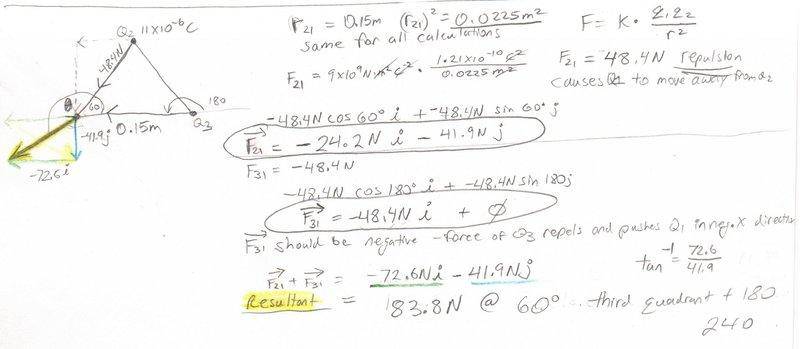 Q2 11x10⁻⁶C
48.4N
θ
60
180
0.15m
Q3
-41.9j
-72.6i
r₂₁ = 0.15m (r₂₁)² = 0.0225m²
same for all calculations
F = K · q₁q₂ / r²
F₂₁ = 9x10⁹N m²/c² · 1.21x10⁻¹⁰ c² / 0.0225m²
F₂₁ = 48.4N repulsion
causes Q1 to move away from Q2
-48.4N cos 60° i + -48.4N sin 60° j
F₂₁ = -24.2N i - 41.9N j
F₃₁ = -48.4N
-48.4N cos 180° i + -48.4N sin 180j
F₃₁ = -48.4N i + ∅
F₃₁ should be negative - force of Q3 repels and pushes Q1 in neg. X direction
tan⁻¹ = 72.6 / 41.9
F₂₁ + F₃₁ = -72.6N i - 41.9N j
Resultant = 83.8N @ 60° .. third quadrant + 180
240